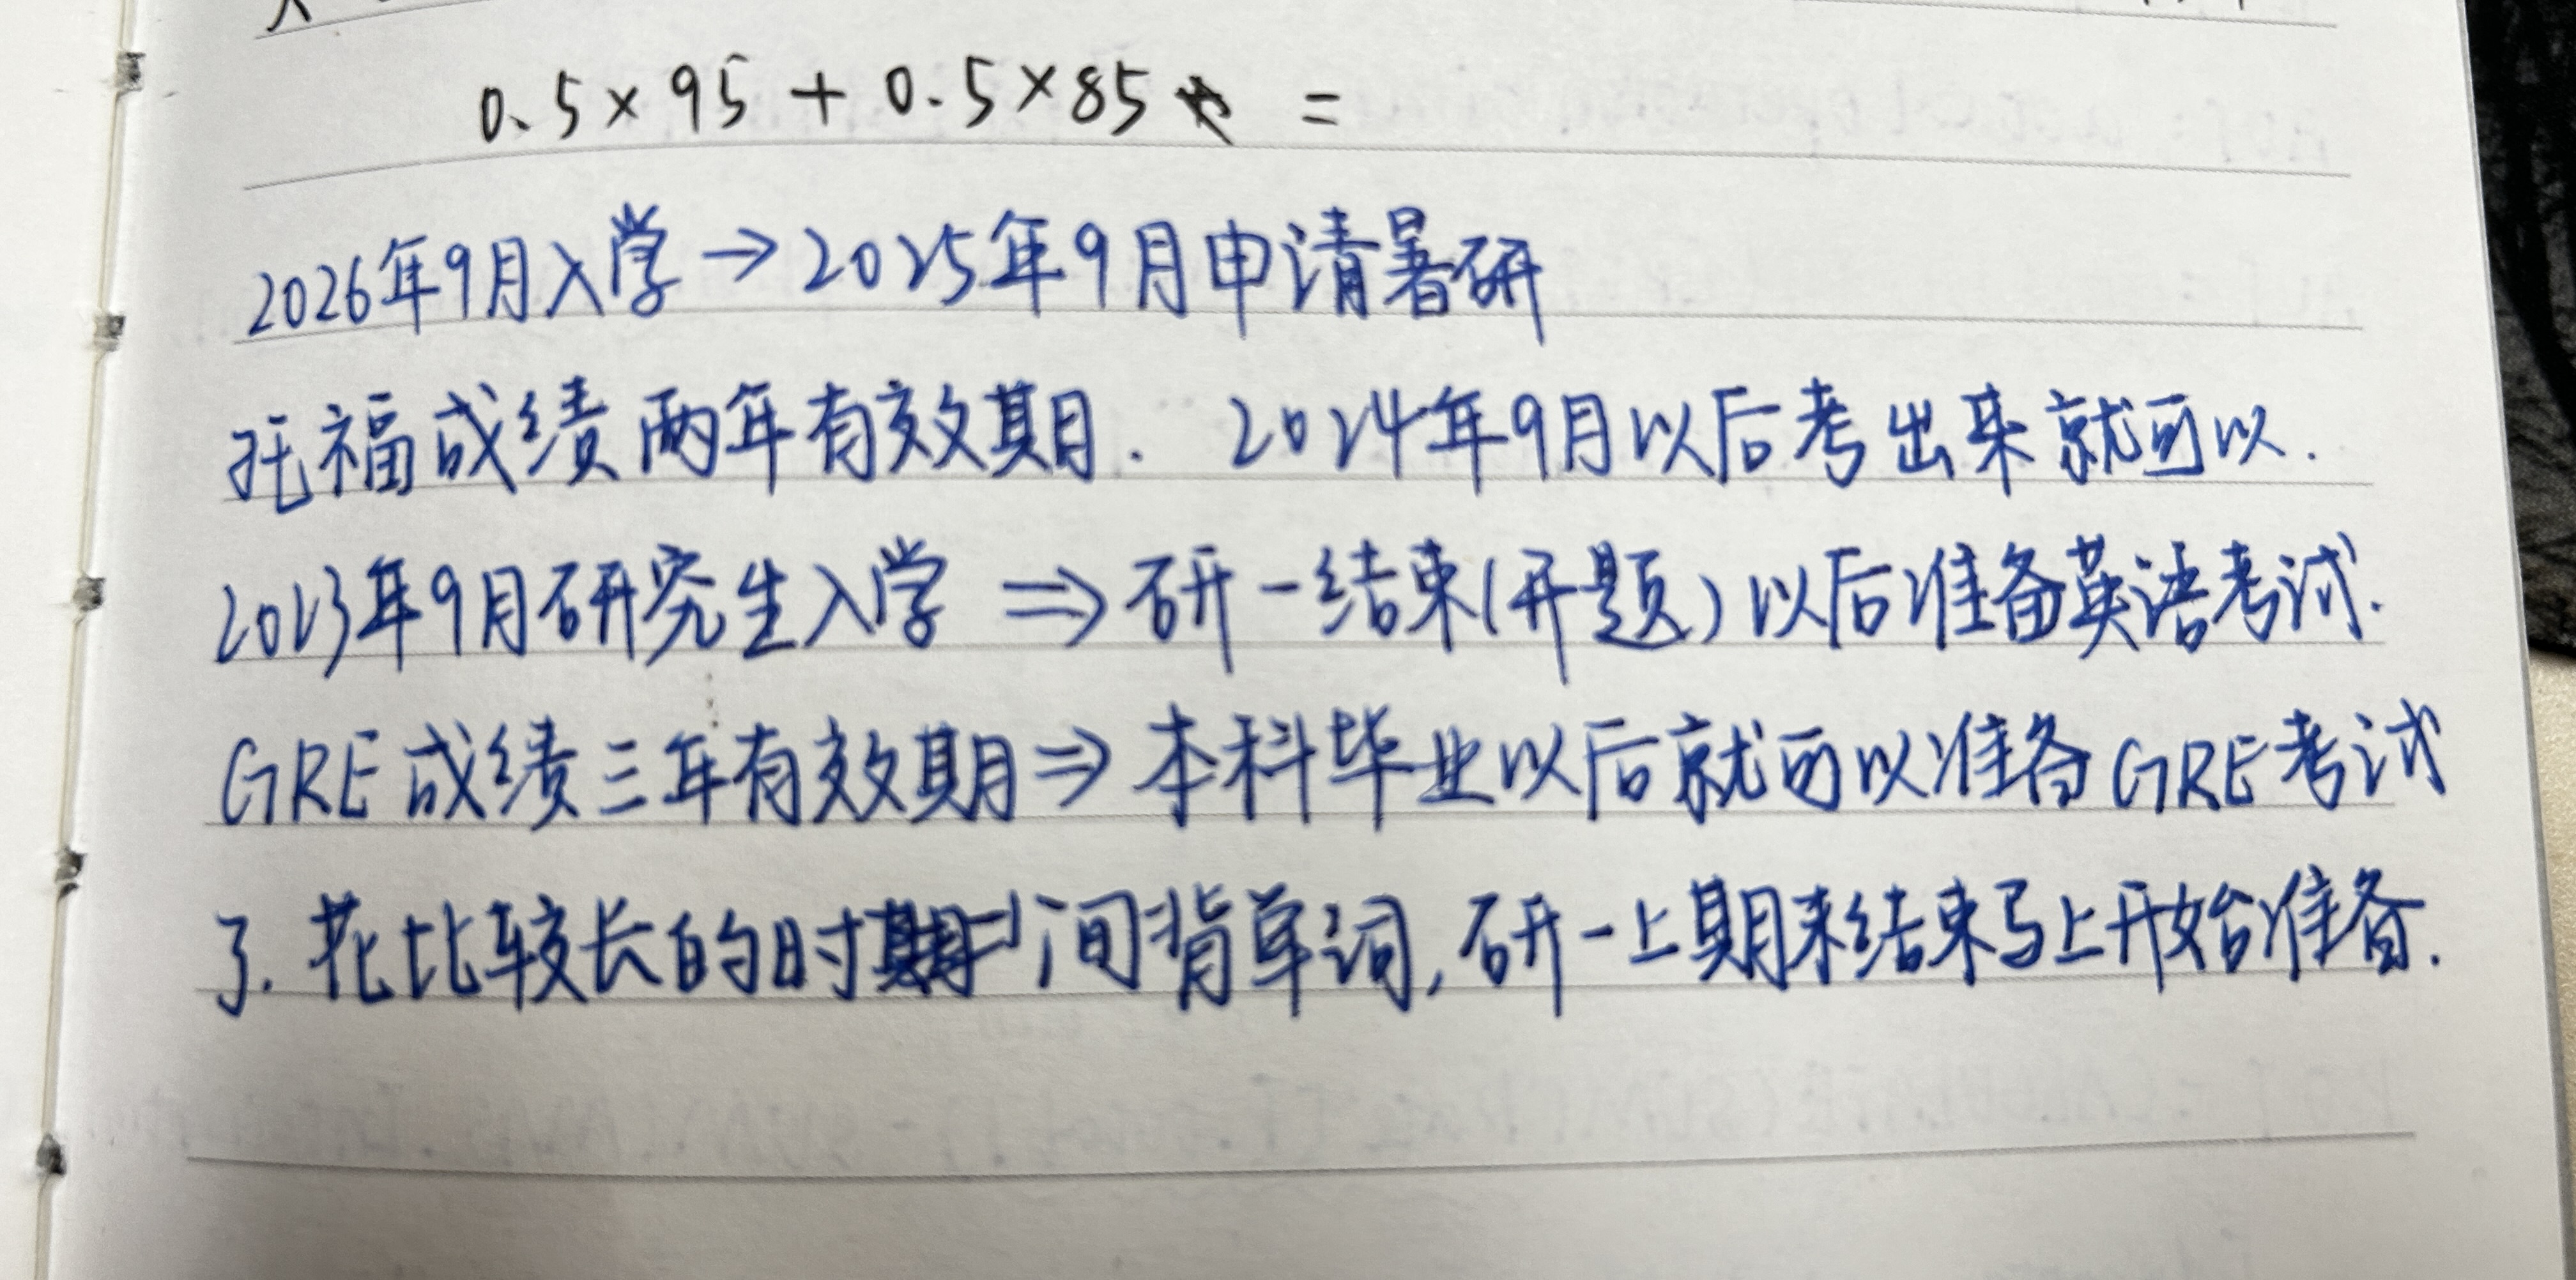 0.5×95+0.5×85 =
2026年9月入学→2025年9月申请暑研
托福成绩两年有效期. 2024年9月以后考出来就可以.
2023年9月研究生入学 ⇒ 研一结束(开题)以后准备英语考试.
GRE成绩三年有效期⇒本科毕业以后就可以准备GRE考试
了. 花比较长的时间背单词,研一上期末结束马上开始准备.